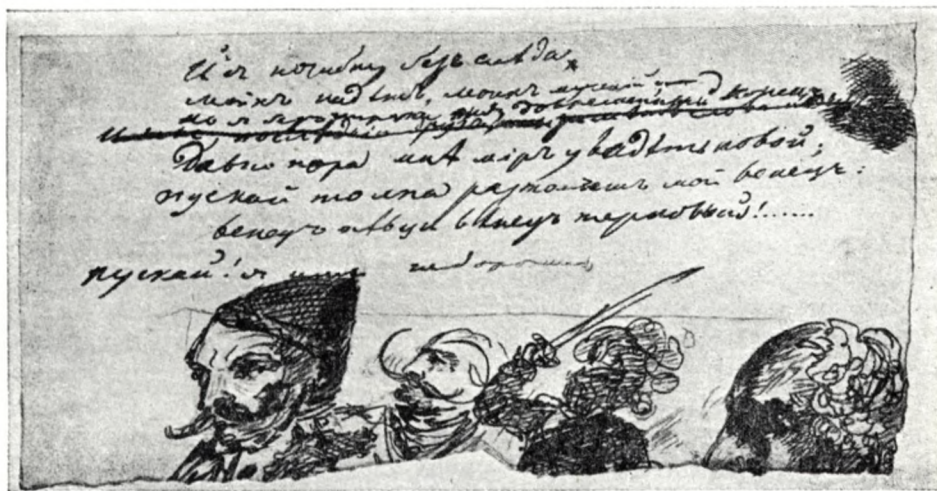 И я погибну безъ слѣда
моихъ надѣждъ, моихъ мученій
но я довременный конецъ
И
Давно пора мнѣ міръ увидѣть новой;
пускай толпа растопчетъ мой венецъ:
венецъ пѣвца вѣнецъ терновый!......
пускай! я имъ не дорожилъ